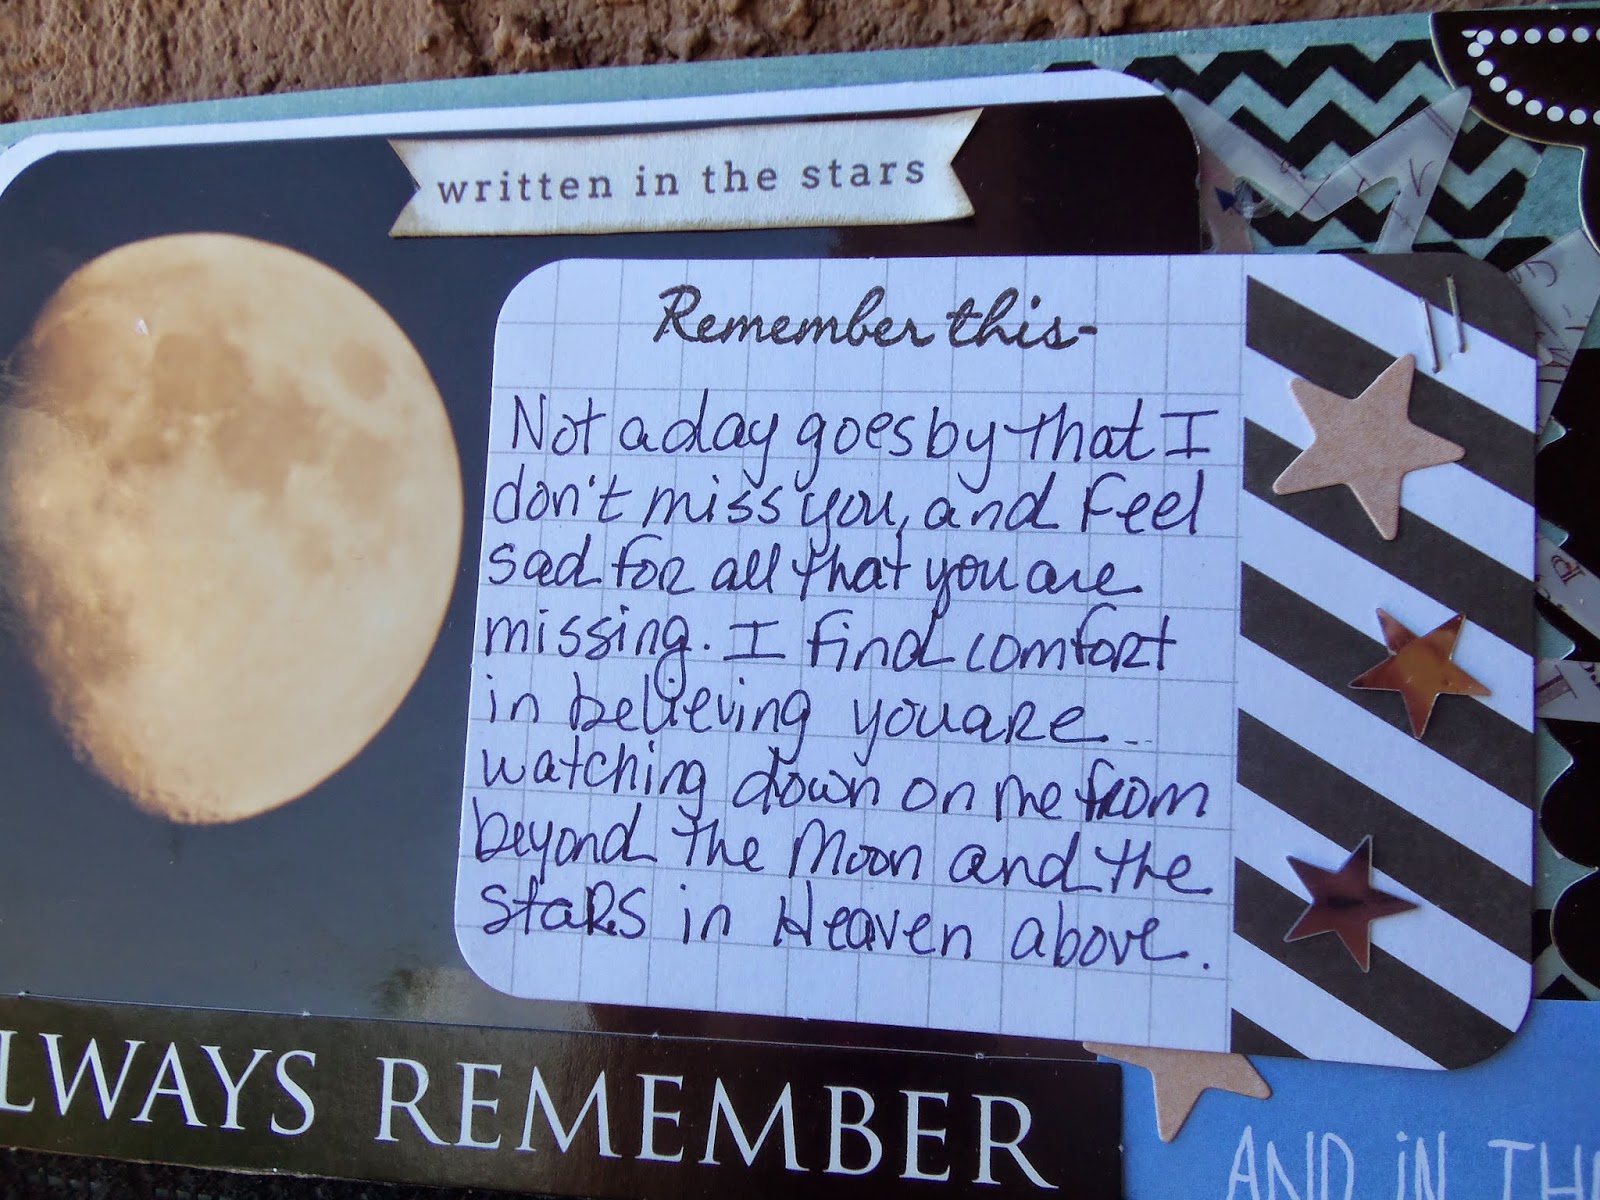 written in the stars
Remember this-
Not a day goes by that I
don't miss you, and Feel
sad for all that you are
missing. I find comfort
in believing you are
watching down on me from
beyond the Moon and the
staRS in Heaven above.
LWAYS REMEMBER
AND iN TH